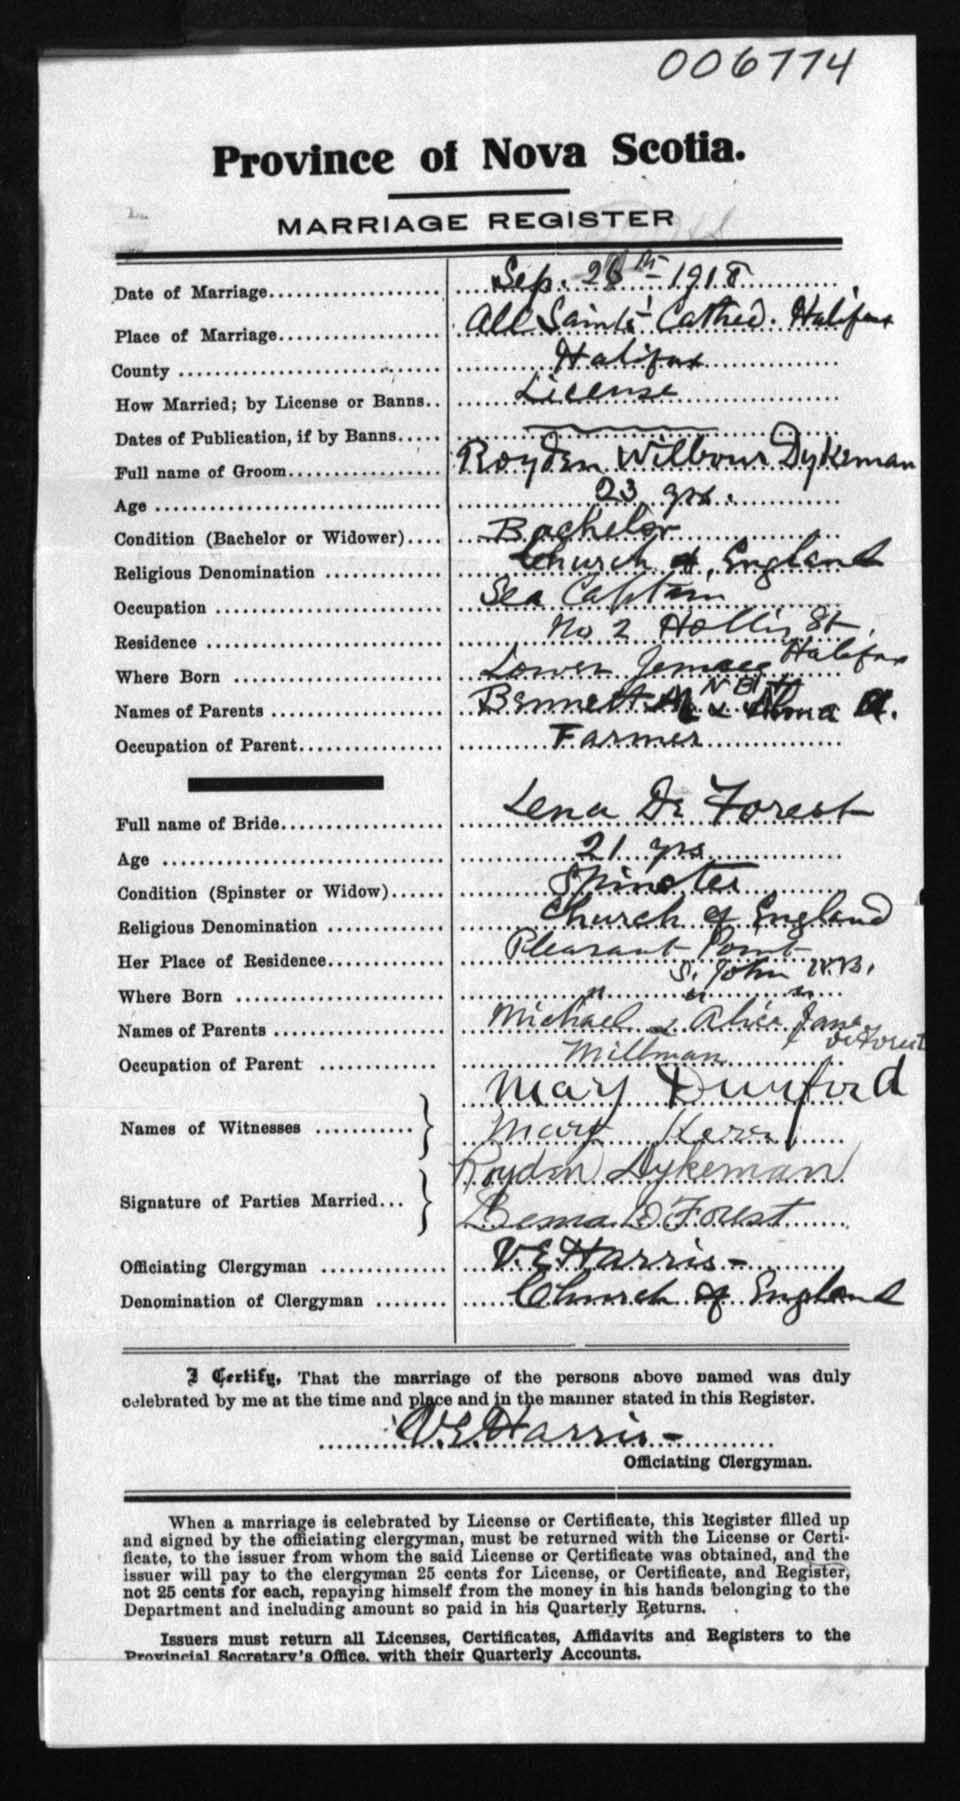 006774
Province of Nova Scotia.
MARRIAGE REGISTER
Date of Marriage Sep. 26th 1918
Place of Marriage All Saints' Cathed. Halifax
County Halifax
How Married; by License or Banns License
Dates of Publication, if by Banns
Full name of Groom Royden Wilbour Dykeman
Age 23 yrs.
Condition (Bachelor or Widower) Bachelor
Religious Denomination Church of England
Occupation Sea Captain
Residence No 2 Hollis St. Halifax
Where Born Lower Jemseg N B
Names of Parents Bennett & Alma A.
Occupation of Parent Farmer
Full name of Bride Lena De Forest
Age 21 yrs
Condition (Spinster or Widow) Spinster
Religious Denomination Church of England
Her Place of Residence Pleasant Point S. John N.B.
Where Born " " "
Names of Parents Michael & Alice Jane De Forest
Occupation of Parent Millman
Names of Witnesses Mary Durford
Mary Kerr
Signature of Parties Married Roydon Dykeman
Lema D Forest
Officiating Clergyman V. E. Harris -
Denomination of Clergyman Church of England
I Certify, That the marriage of the persons above named was duly
celebrated by me at the time and place and in the manner stated in this Register.
V. E. Harris -
Officiating Clergyman.
When a marriage is celebrated by License or Certificate, this Register filled up
and signed by the officiating clergyman, must be returned with the License or Certi-
ficate, to the issuer from whom the said License or Certificate was obtained, and the
issuer will pay to the clergyman 25 cents for License, or Certificate, and Register,
not 25 cents for each, repaying himself from the money in his hands belonging to the
Department and including amount so paid in his Quarterly Returns.
Issuers must return all Licenses, Certificates, Affidavits and Registers to the
Provincial Secretary's Office, with their Quarterly Accounts.